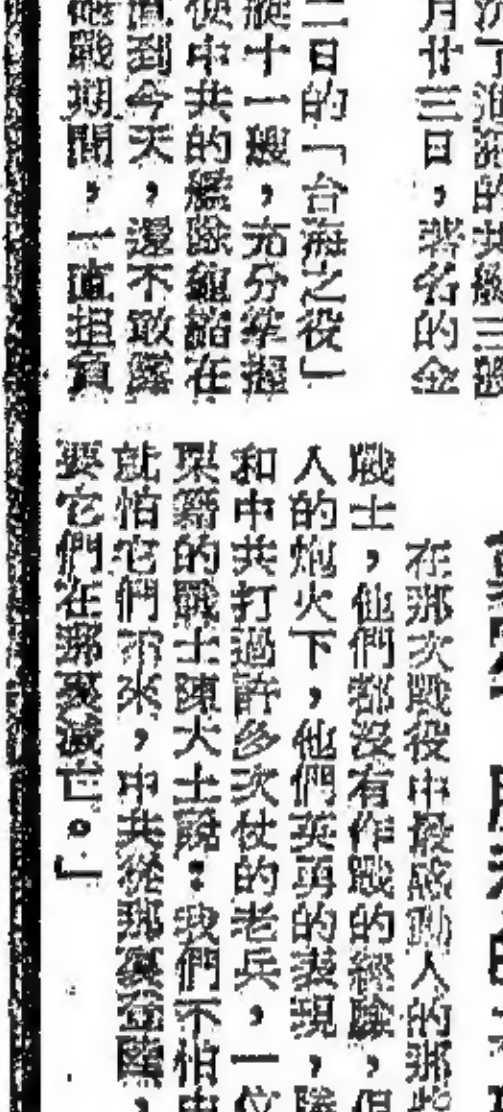 的共
月廿三日，著名的金
二日的「台海之役」
艇十一艘，充分掌握
使中共的艦隊龜縮在
到今天，還不敢露
砲戰期間，一直担負
在那次戰役中最感動人的那些
戰士，他們都沒有作戰的經驗，但
人的炮火下，他們英勇的表現，
和中共打過許多次仗的老兵，一位
籍的戰士陳大士說：我們不怕中
就怕它們不來，中共從那裏登陸，
要它們在那裏滅亡。」